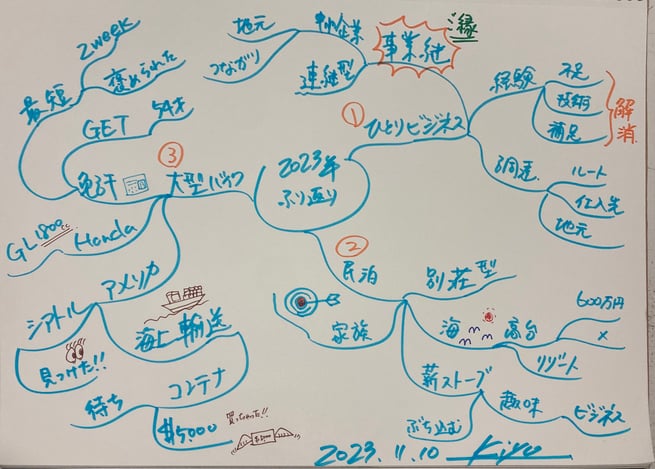 2023年
ふり返り
①
ひとりビジネス
事業継
ご縁
中小企業
地元
つながり
連継型
経験
不足
技術
補足
解消
調達
ルート
仕入先
地元
②
民泊
別荘型
家族
海
高台
600万円
×
リゾート
薪ストーブ
趣味
ビジネス
ぶち込む
③
大型バイク
免許
最短
2week
褒められた
GET
54才
Honda
GL1800cc
アメリカ
シアトル
見つけた!!
海上輸送
コンテナ
待ち
$5000
買っちゃった!!
$5000
2023.11.10
Kiyo